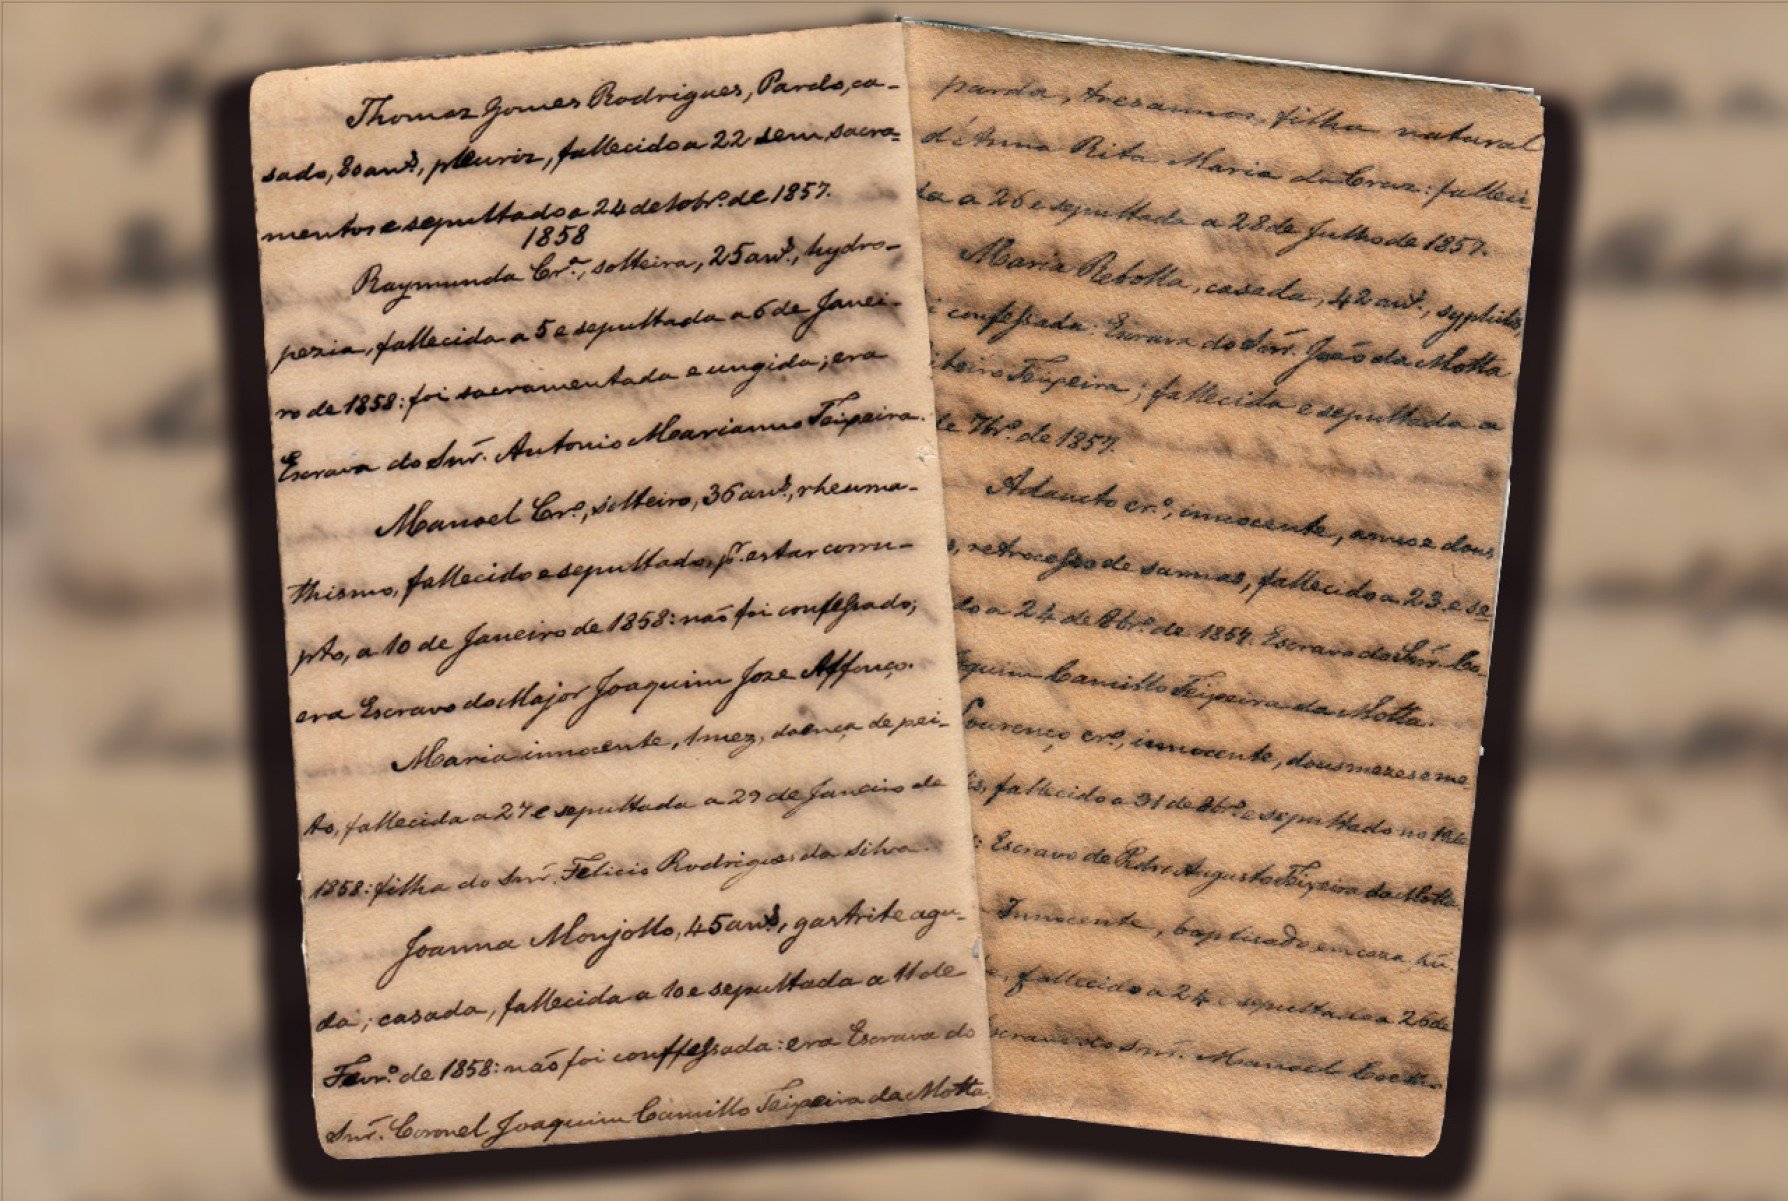 Thomaz Gomes Rodrigues, Pardo, ca-
sado, 80 an.s, pleuriz, fallecido a 22 sem sacra-
mentos e sepultado a 24 de 10br.o de 1857.
1858
Raymunda Cr.a, solteira, 25 an.s, hydro-
pezia, fallecida a 5 e sepultada a 6 de Janei-
ro de 1858: foi sacramentada e ungida; era
Escrava do Snr. Antonio Marianno Teixeira.
Manoel Cr.o, solteiro, 36 an.s, rheuma-
thismo, fallecido e sepultado, pr. estar corru-
pto, a 10 de Janeiro de 1858: não foi confessado;
era Escravo do Major Joaquim Joze Affonço.
Maria innocente, 1 mez, doença de pei-
to, fallecida a 27 e sepultada a 29 de Janeiro de
1858: filha do Snr. Felicio Rodrigues da Silva.
Joanna Monjollo, 45 an.s, gastrite agu-
da; casada, fallecida a 10 e sepultada a 11 de
Fevr.o de 1858: não foi conffessada: era Escrava do
Snr. Coronel Joaquim Camillo Teixeira da Motta
parda, tres annos, filha natural
d'Anna Rita Maria da Cruz: falleci-
da a 26 e sepultada a 28 de Julho de 1857.
Maria Rebolla, casada, 42 an.s, syphilis,
i confessada: Escrava do Snr. João da Motta
ibeiro Teixeira; fallecida e sepultada a
de 7br.o de 1857.
Adaucto cr.o, innocente, anno e dous
s, retrocesso de sarnas, fallecido a 23 e se
do a 24 de 8br.o de 1857. Escravo do Snr. Co-
aquim Camillo Teixeira da Motta.
Lourenço cr.o, innocente, dous mezes e me
fallecido a 31 de 8br.o e sepultado no 1º de
: Escravo de Pedro Augusto Teixeira da Motta
Innocente, baptisado em caza,
fallecido a 24 e sepultado a 26 de
scrava do Snr. Manoel Coelho